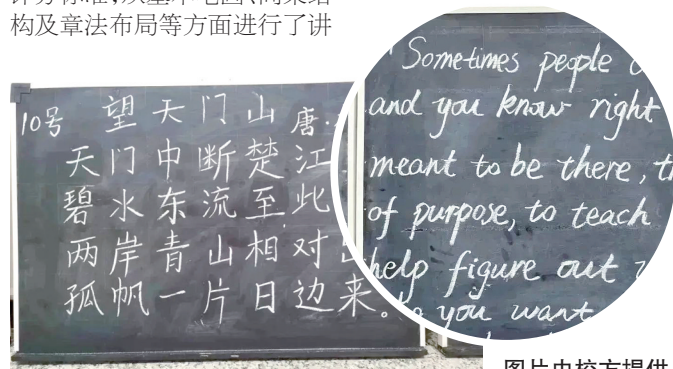 评分标准,从基本笔画、间架结
构及章法布局等方面进行了讲
10号 望天门山 唐·
天门中断楚江
碧水东流至此
两岸青山相对
孤帆一片日边来。
Sometimes people
and you know right
meant to be there,
of purpose, to teach
help figure out
you want
图片由校方提供